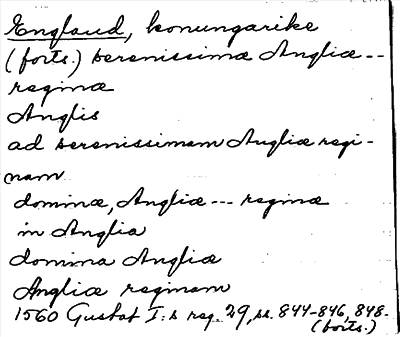 England, konungarike
(forts.) serenissimæ Angliæ ---
reginæ
Anglis
ad serenissimam Angliæ regi-
nam
dominæ, Angliæ --- reginæ
in Anglia
domina Angliæ
Angliæ reginam
1560 Gustaf I:s reg. 29, ss. 844-846, 848.
(forts.)